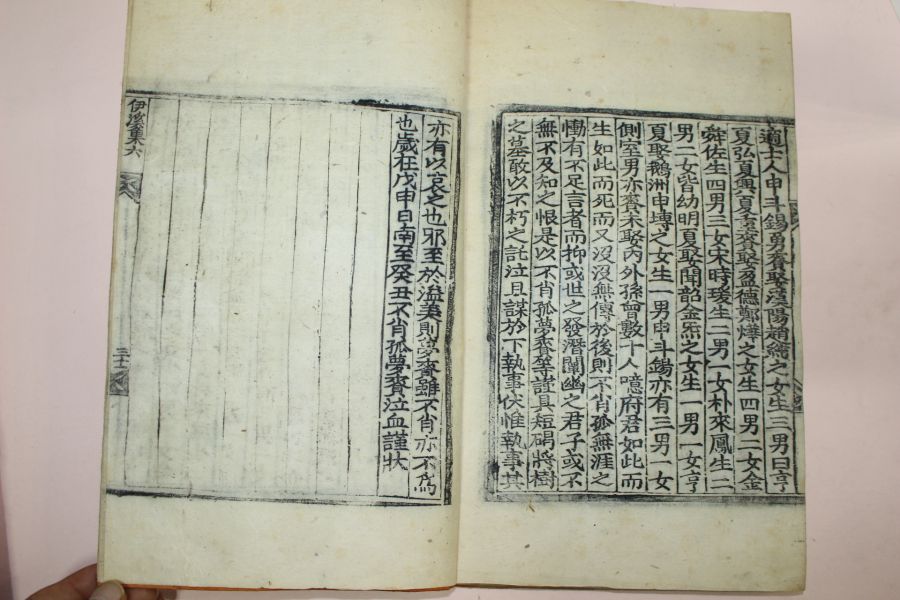 適士人申斗錫勇賚娶漢陽趙繡之女生三男曰亨
夏弘夏興夏賚娶盈德鄭燁之女生四男二女金
舜佐生四男三女宋時瑗生二男一女朴來鳳生二
男一女皆幼明夏娶聞韶金炁之女生一男一女亨
夏娶鵝洲申塼之女生一男申斗錫亦有三男一女
側室男亦賚未娶內外孫曾數十人噫府君如此而
生如此而死而又沒沒無傳於後則不肖孤無涯之
慟有不足言者而抑或世之發潛闡幽之君子或不
無不及知之恨是以不肖孤夢賚等謹具短碣將樹
之墓敢以不朽之託泣且謀於下執事伏惟執事其
亦有以哀之也邪至於溢美則夢賚雖不肖亦不爲
也歲在戊申日南至癸丑不肖孤夢賚泣血謹狀
伊溪集六